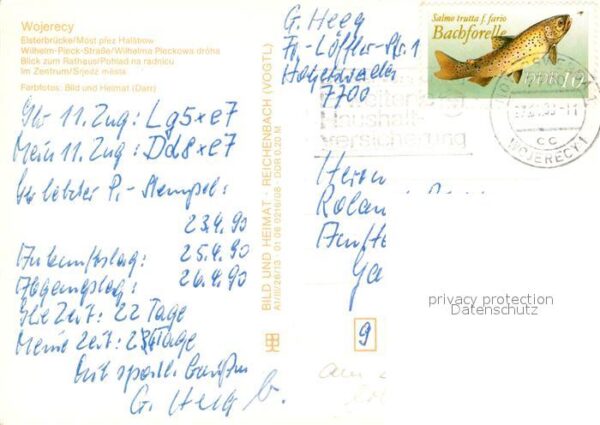 Wojerecy
Elsterbrücke/Most přez Halštrow
Wilhelm-Pieck-Straße/Wilhelma Pieckowa dróha
Blick zum Rathaus/Pohlad na radnicu
Im Zentrum/Srjedź města
Farbfotos: Bild und Heimat (Darr)
Ihr 11. Zug: Lg5xe7
Mein 11. Zug: Dd8xe7
Ihr letzter P.-Stempel:
23.4.90
Ankunftstag: 25.4.90
Abgangstag: 26.4.90
Ihre Zeit: 22 Tage
Meine Zeit: Tage
Mit sportl. Grüßen
G. Heeg
BILD UND HEIMAT · REICHENBACH (VOGTL)
A1/III/26/13 01 06 0216/08 DDR 0,20 M
G. Heeg
Fr.-Löffler-Str. 1
Hoyerswerda
7700
Salmo trutta f. fario
Bachforelle
DDR 10
Haushalt-
versicherung
cc
WOJERECY 1
Herrn
Rolan
privacy protection
Datenschutz
9